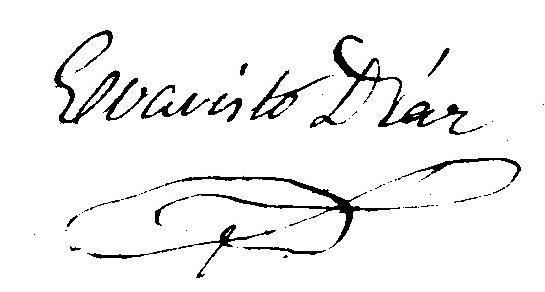 Evaristo Díaz